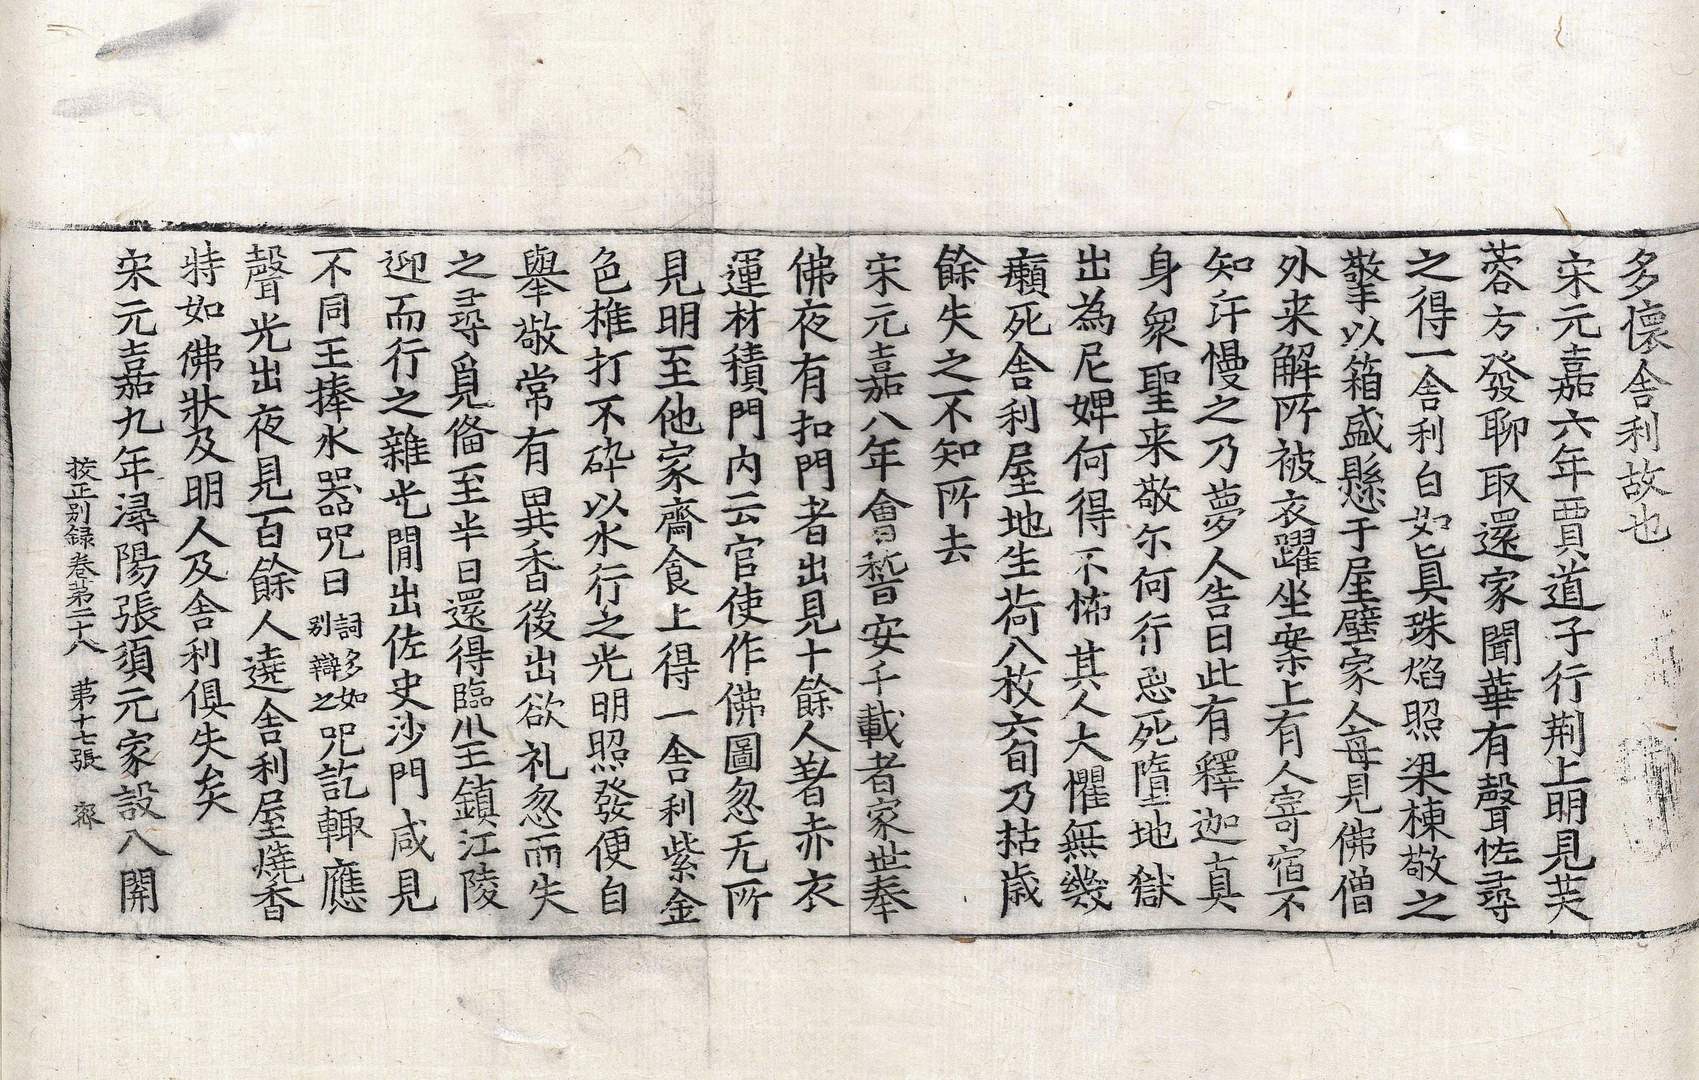 多懷舍利故也
宋元嘉六年賈道子行荆上明見芙
蓉方發聊取還家聞華有聲怪尋
之得一舍利白如真珠焰照梁棟敬之
擎以箱盛懸于屋壁家人每見佛僧
外来解所被衣躍坐案上有人寄宿不
知汙慢之乃夢人告曰此有釋迦真
身衆聖来敬尓何行惡死墮地獄
出為尼婢何得不怖其人大懼無幾
癩死舍利屋地生荷八枚六旬乃枯歳
餘失之不知所去
宋元嘉八年會稽安千載者家世奉
佛夜有扣門者出見十餘人著赤衣
運材積門内云官使作佛圖忽无所
見明至他家齋食上得一舍利紫金
色椎打不碎以水行之光明照發便自
舉敬常有異香後出欲礼忽而失
之尋覓俻至半日還得臨川王鎮江陵
迎而行之雜光間出佐史沙門咸見
不同王捧水器呪曰詞多如別辯之呪訖輙應
聲光出夜見百餘人遶舍利屋燒香
特如佛狀及明人及舍利俱失矣
宋元嘉九年潯陽張須元家設八關
挍正别録卷苐二十八　苐十七張　齊